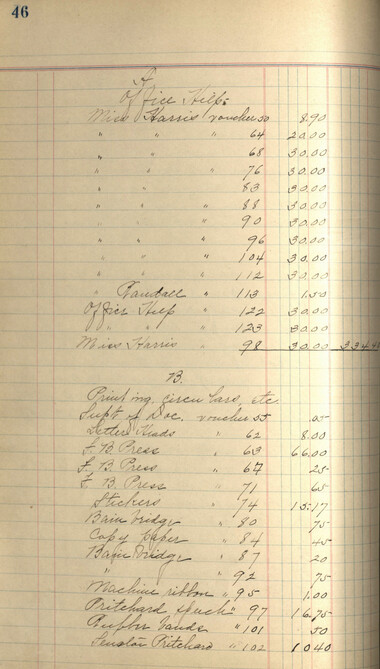 46
A
Office Help
Miss Harris voucher 50 8.90
" " " 64 20.00
" " 68 30.00
" " " 76 30.00
" " 83 30.00
" " " 88 30.00
" " " 90 30.00
" " " 96 30.00
" " " 104 30.00
" " " 112 30.00
" Randall " 113 1.50
Office Help " 122 30.00
" " " 123 30.00
Miss Harris " 98 30.00 334
B.
Printing, circulars, etc
Supt of Doc. voucher 55 .05
Letter Heads " 62 8.00
F. B. Press " 63 66.00
F. B. Press " 67 25
F. B. Press " 71 65
Stickers " 74 15.17
Bainbridge " 80 75
Copy paper " 84 45
Bainbridge " 87 20
" " 92 75
Machine ribbon " 95 1.00
Pritchard speech " 97 16.75
Rubber bands " 101 50
Senator Pritchard " 102 10.40